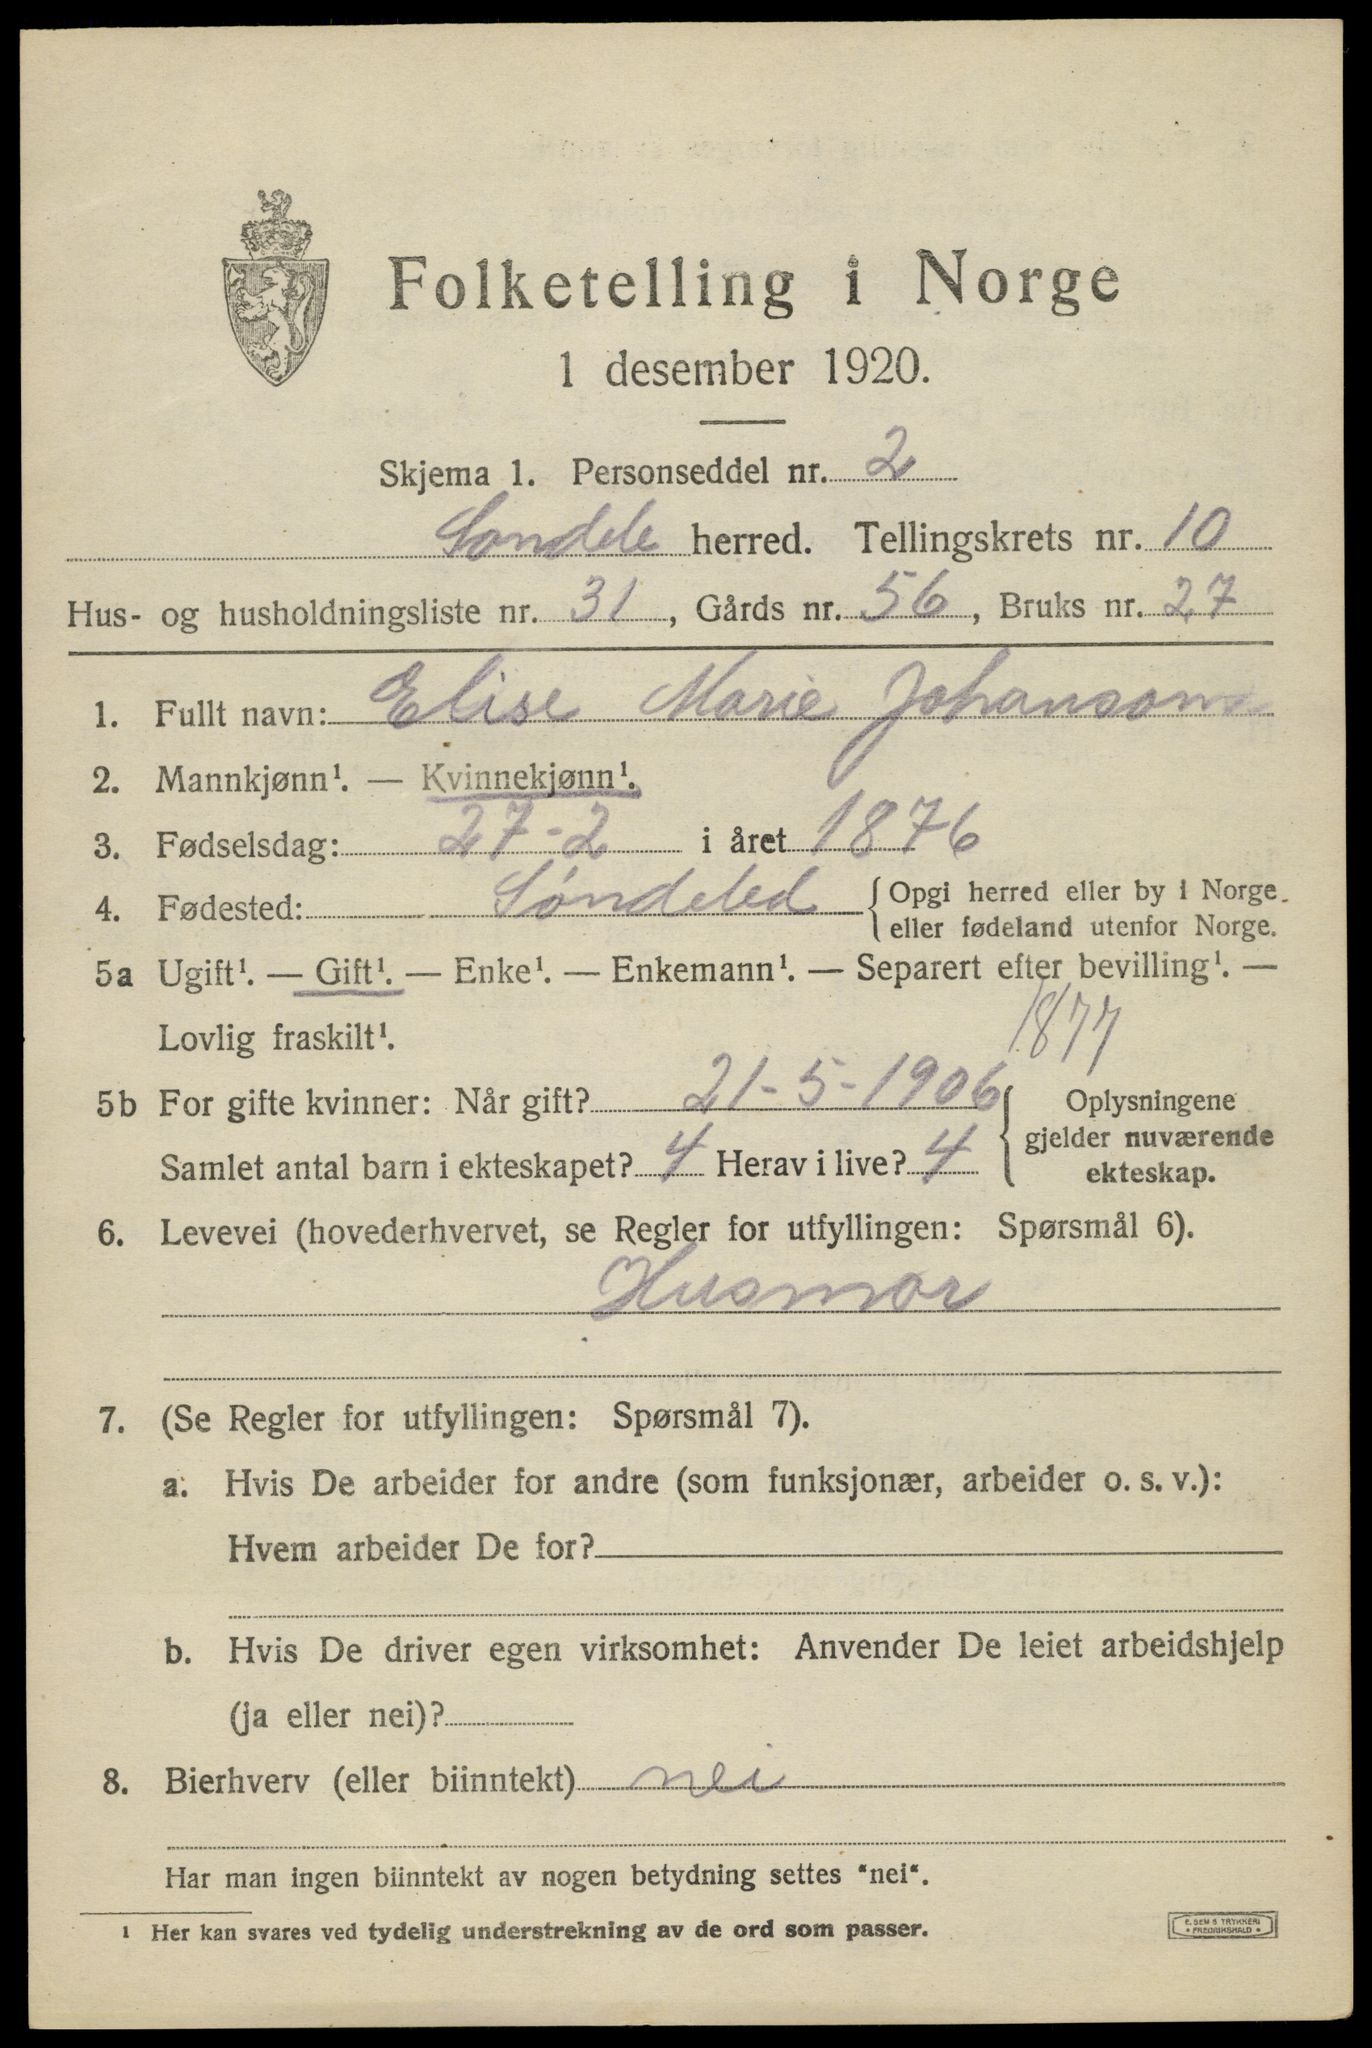 Folketelling i Norge
1 desember 1920.
Skjema 1. Personseddel nr. 2
Søndele herred. Tellingskrets nr. 10
Hus- og husholdningsliste nr. 31, Gårds nr. 56, Bruks nr. 27
1. Fullt navn: Elise Marie Johanson
2. Mannkjønn¹. — Kvinnekjønn¹.
3. Fødselsdag: 27-2 i året 1876
4. Fødested: Søndeled { Opgi herred eller by i Norge
eller fødeland utenfor Norge.
5a Ugift¹. — Gift¹. — Enke¹. — Enkemann¹. — Separert efter bevilling¹. —
Lovlig fraskilt¹.
1877
5b For gifte kvinner: Når gift? 21-5-1906 { Oplysningene
Samlet antal barn i ekteskapet? 4 Herav i live? 4 gjelder nuværende
ekteskap.
6. Levevei (hovederhvervet, se Regler for utfyllingen: Spørsmål 6).
Husmor
7. (Se Regler for utfyllingen: Spørsmål 7).
a. Hvis De arbeider for andre (som funksjonær, arbeider o. s. v.):
Hvem arbeider De for?
b. Hvis De driver egen virksomhet: Anvender De leiet arbeidshjelp
(ja eller nei)?
8. Bierhverv (eller biinntekt) nei
Har man ingen biinntekt av nogen betydning settes "nei".
¹ Her kan svares ved tydelig understrekning av de ord som passer.
E. SEM'S TRYKKERI
FREDRIKSHALD